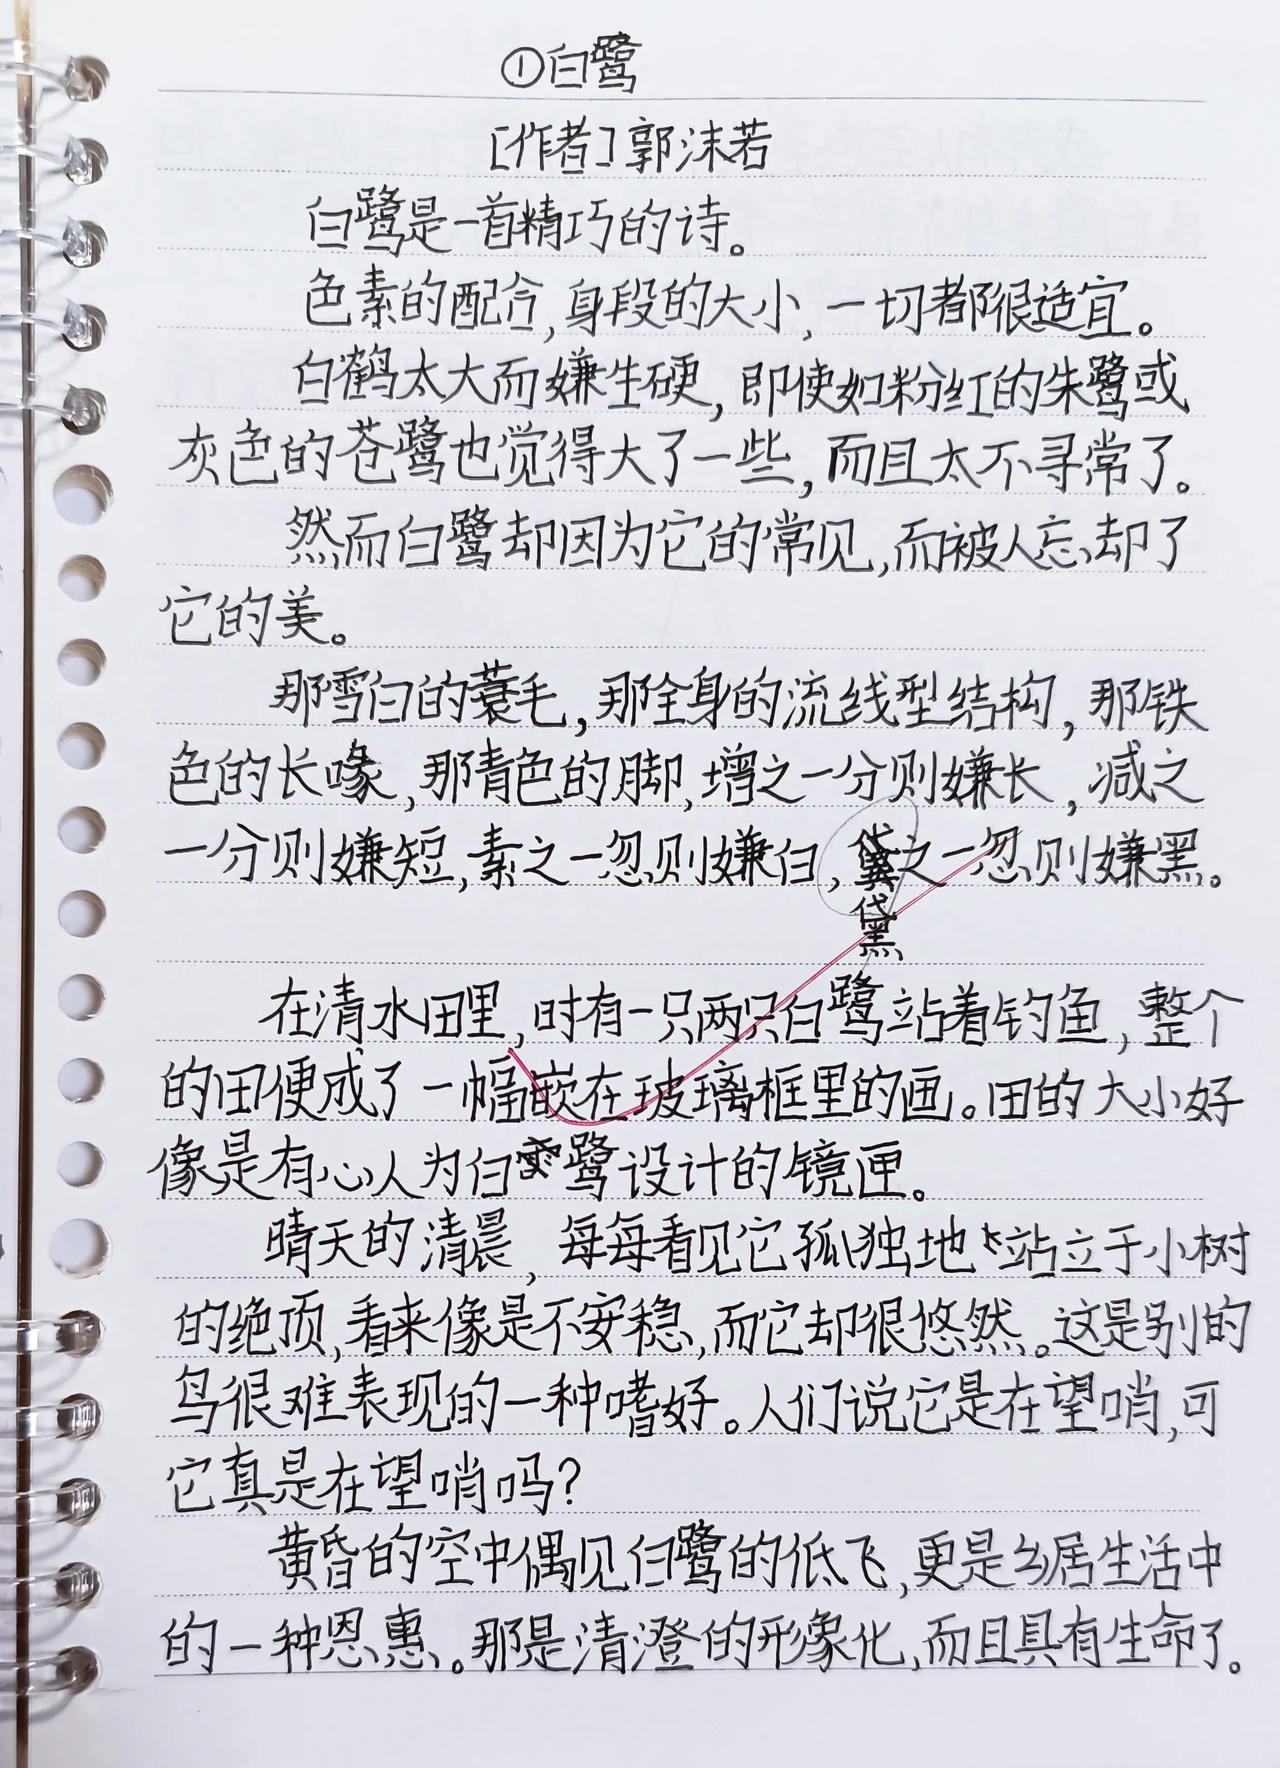 ①白鹭
[作者]郭沫若
白鹭是一首精巧的诗。
色素的配合,身段的大小,一切都很适宜。
白鹤太大而嫌生硬,即使如粉红的朱鹭或
灰色的苍鹭也觉得大了一些,而且太不寻常了。
然而白鹭却因为它的常见,而被人忘却了
它的美。
那雪白的蓑毛,那全身的流线型结构,那铁
色的长喙,那青色的脚,增之一分则嫌长,减之
一分则嫌短,素之一忽则嫌白,之一忽则嫌黑。
黛
在清水田里,时有一只两只白鹭站着钓鱼,整个
的田便成了一幅嵌在玻璃框里的画。田的大小好
像是有心人为白鹭设计的镜匣。
晴天的清晨,每每看见它孤独地站立于小树
的绝顶,看来像是不安稳,而它却很悠然。这是别的
鸟很难表现的一种嗜好。人们说它是在望哨,可
它真是在望哨吗?
黄昏的空中偶见白鹭的低飞,更是乡居生活中
的一种恩惠。那是清澄的形象化,而且具有生命了。